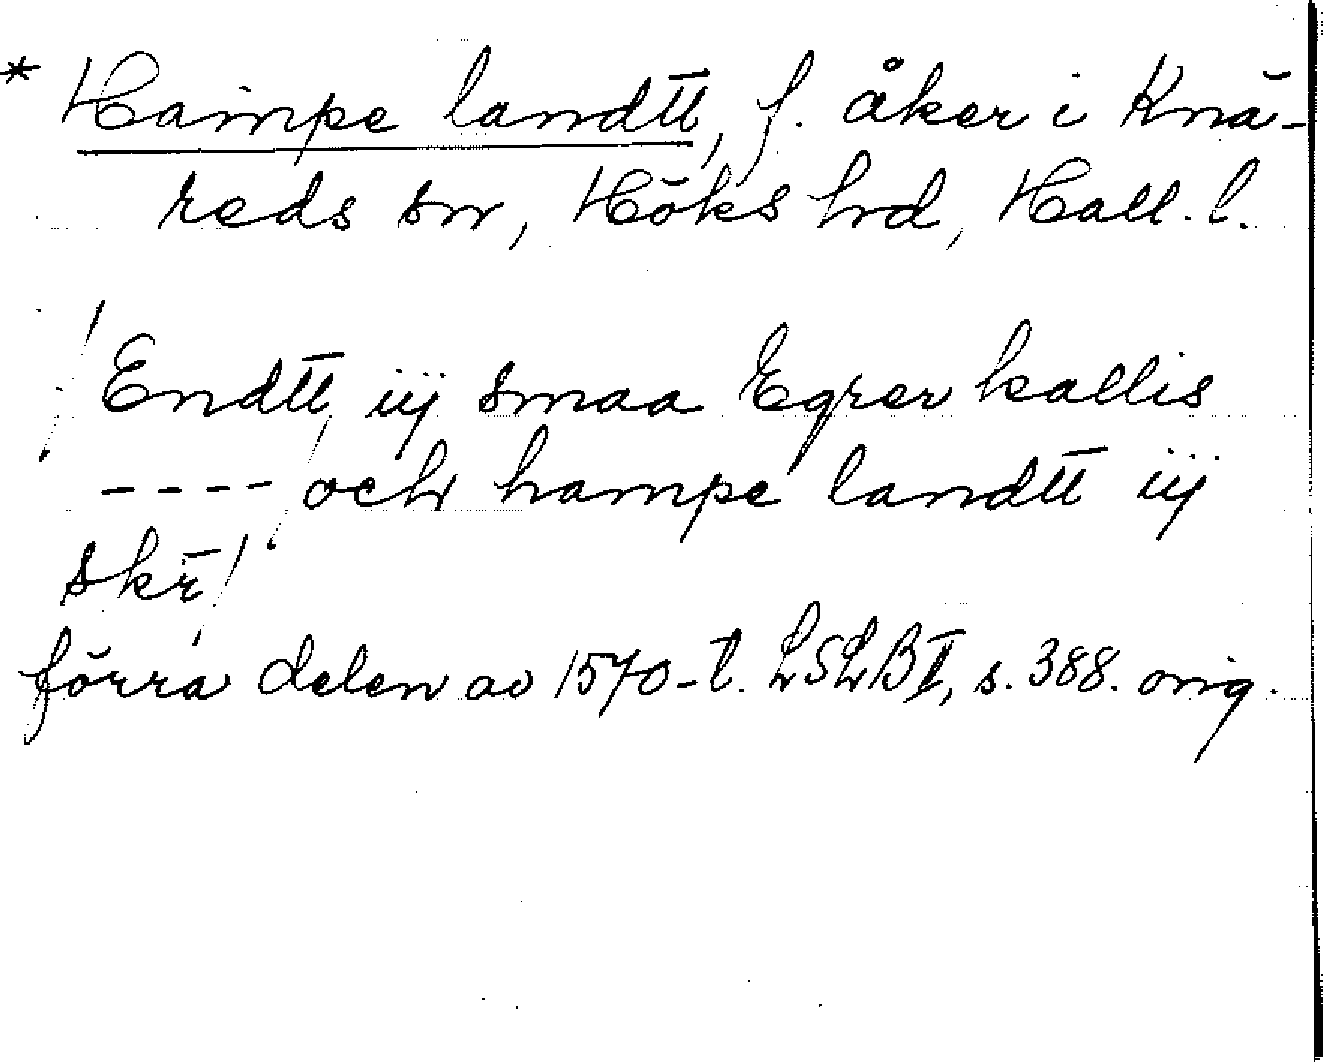 * Hampe landtt, f. åker i Knä-
reds sn, Höks hrd, Hall. l.
/Endtt iij smaa Egrer kallis
---- / och hampe landtt iij
skr̄/
förra delen av 1570-t. LSLB II, s. 388. orig.